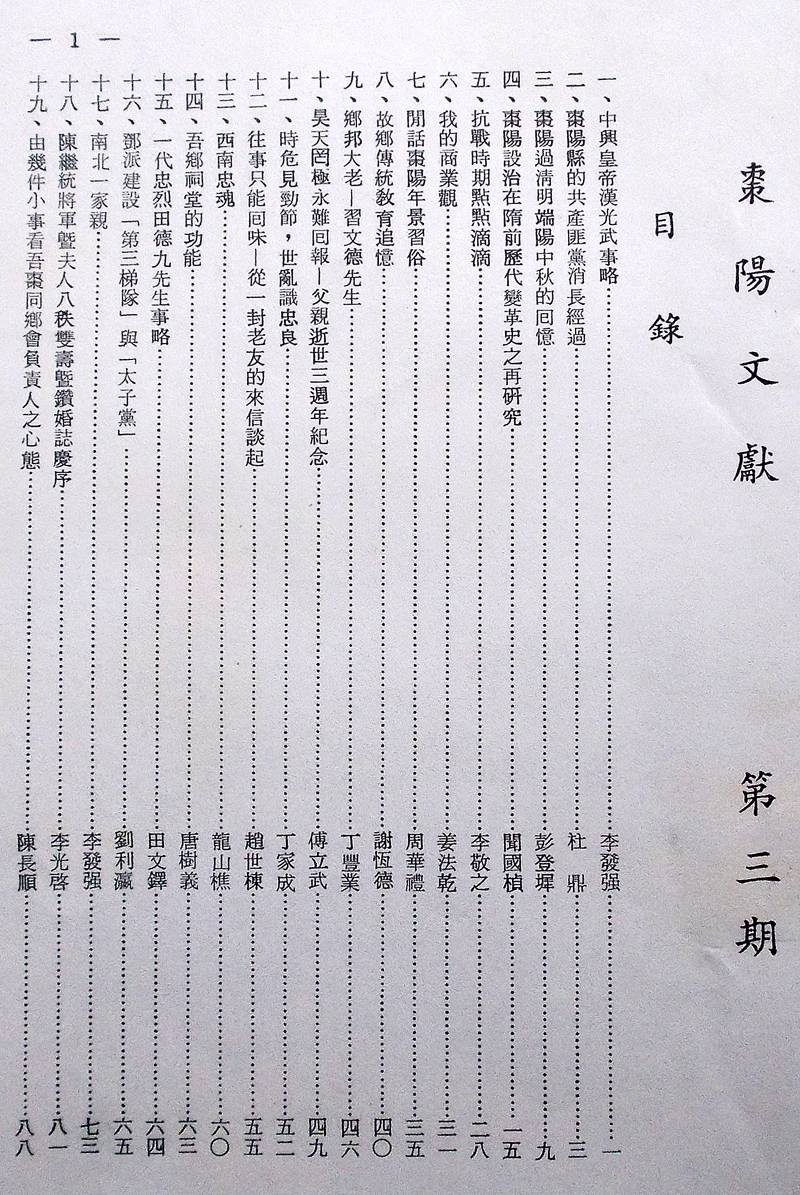 棗陽文獻 第三期
目錄
一、中興皇帝漢光武事略……李發强……一
二、棗陽縣的共產匪黨消長經過……杜 鼎……三
三、棗陽過清明端陽中秋的回憶……彭登墀……九
四、棗陽設治在隋前歷代變革史之再研究……聞國楨……一五
五、抗戰時期點點滴滴……李敬之……二八
六、我的商業觀……姜法乾……三一
七、閒話棗陽年景習俗……周華禮……三五
八、故鄉傳統教育追憶……謝恆德……四〇
九、鄉邦大老—習文德先生……丁豐業……四六
十、昊天罔極永難回報—父親逝世三週年紀念……傅立武……四九
十一、時危見勁節，世亂識忠良……丁家成……五二
十二、往事只能回味—從一封老友的來信談起……趙世棟……五五
十三、西南忠魂……龍山樵……六〇
十四、吾鄉祠堂的功能……唐樹義……六三
十五、一代忠烈田德九先生事略……田文鐸……六四
十六、鄧派建設「第三梯隊」與「太子黨」……劉利瀛……六五
十七、南北一家親……李發强……七三
十八、陳繼統將軍暨夫人八秩雙壽暨鑽婚誌慶序……李光啓……八一
十九、由幾件小事看吾棗同鄉會負責人之心態……陳長順……八八
— 1 —